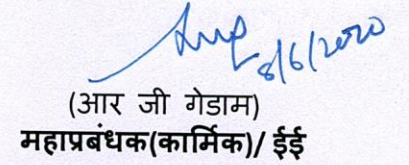 8/6/2020
(आर जी गेडाम)
महाप्रबंधक(कार्मिक)/ ईई